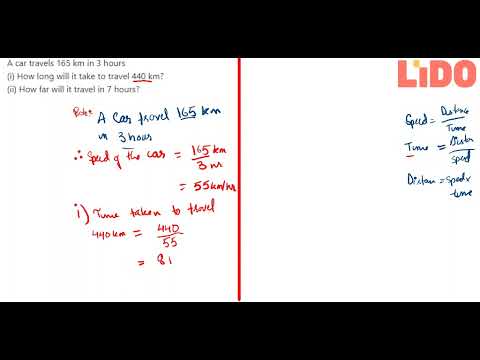 A car travels 165 km in 3 hours
(i) How long will it take to travel 440 km?
(ii) How far will it travel in 7 hours?
LiDO
A Car travel 165 km
in 3 hours
∴ Speed of the car = 165 km / 3 hr
= 55 km/hr
i) Time taken to travel
440 km = 440 / 55
= 8
Speed = Distance / Time
Time = Distan / speed
Distan = speed x
time